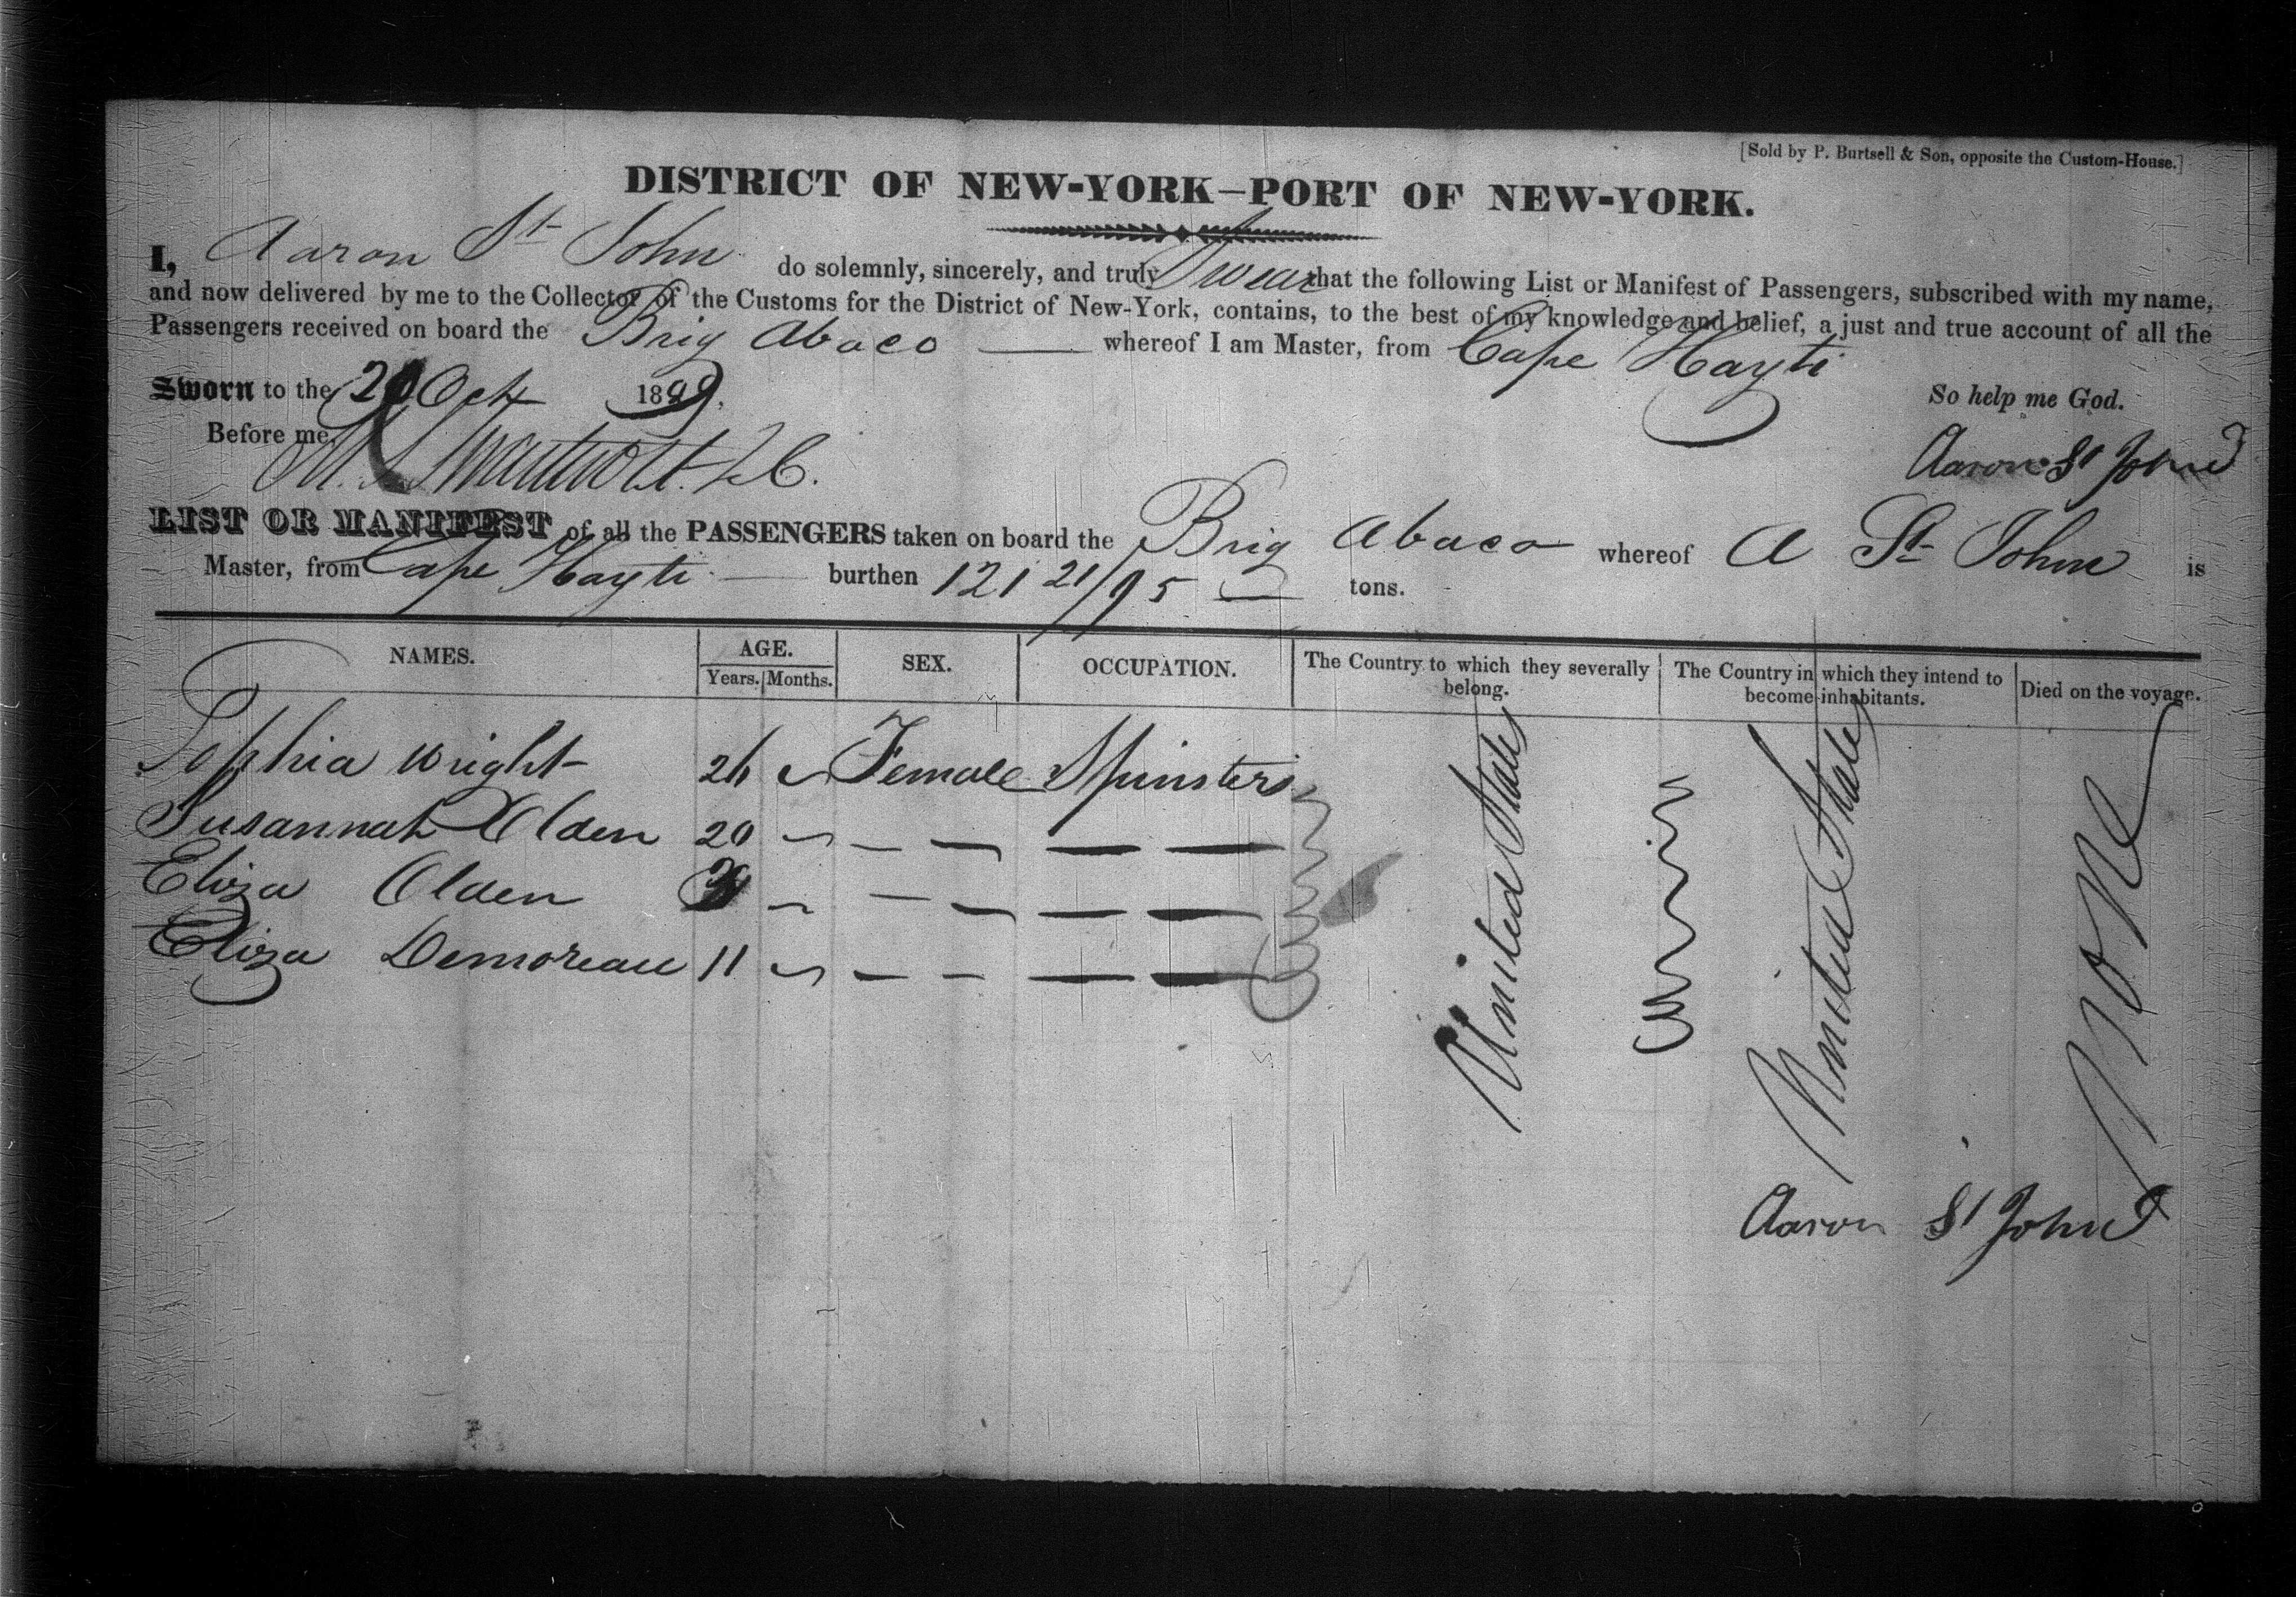 [Sold by P. Burtsell & Son, opposite the Custom-House.]
DISTRICT OF NEW-YORK—PORT OF NEW-YORK.
I, Aaron St John do solemnly, sincerely, and truly Swear that the following List or Manifest of Passengers, subscribed with my name,
and now delivered by me to the Collector of the Customs for the District of New-York, contains, to the best of my knowledge and belief, a just and true account of all the
Passengers received on board the Brig Abaco — whereof I am Master, from Cape Hayti
Sworn to the Oct 18 So help me God.
Before me, Aaron St John
LIST OR MANIFEST of all the PASSENGERS taken on board the Brig Abaco whereof A St John is
Master, from Cape Hayti — burthen 121 21/95 — tons.
NAMES. AGE. Years. Months. SEX. OCCUPATION. The Country to which they severally belong. The Country in which they intend to become inhabitants. Died on the voyage.
Sophia Wright 26 Female Spinsters United States United States None
Susannah Olden 20
Eliza Olden
Eliza Demoreau 11
Aaron St John